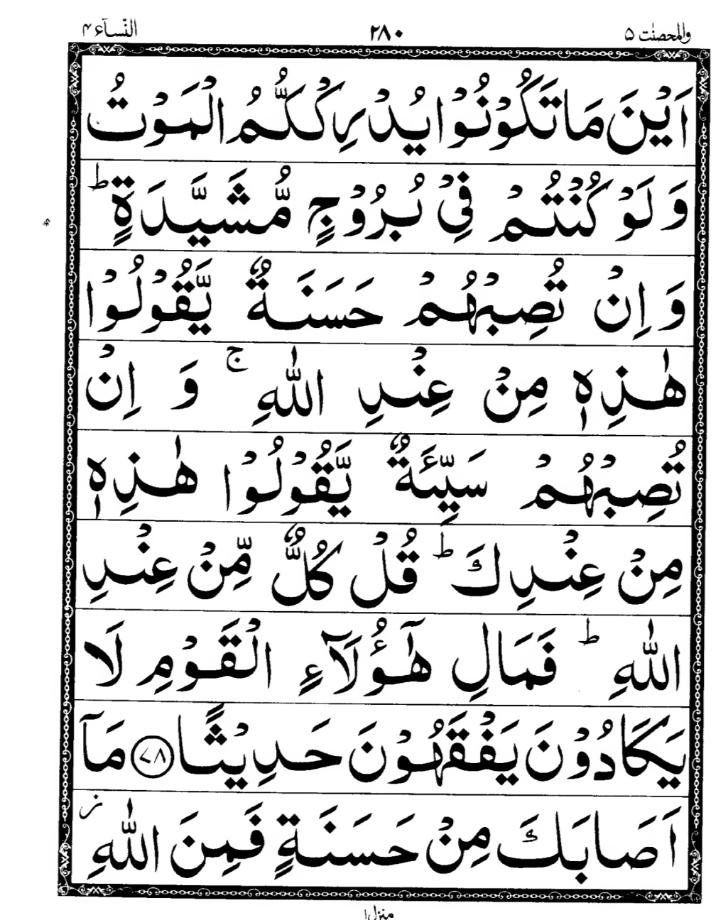 والمحصنٰت ۵ ۲۸۰ النّسآء ۴
اَيْنَ مَا تَكُوْنُوْا يُدْرِكْكُّمُ الْمَوْتُ
وَ لَوْ كُنْتُمْ فِيْ بُرُوْجٍ مُّشَيَّدَةٍ ؕ
وَ اِنْ تُصِبْهُمْ حَسَنَةٌ يَّقُوْلُوْا
هٰذِهٖ مِنْ عِنْدِ اللّٰهِ ۚ وَ اِنْ
تُصِبْهُمْ سَيِّئَةٌ يَّقُوْلُوْا هٰذِهٖ
مِنْ عِنْدِكَ ؕ قُلْ كُلٌّ مِّنْ عِنْدِ
اللّٰهِ ؕ فَمَالِ هٰۤؤُلَآءِ الْقَوْمِ لَا
يَكَادُوْنَ يَفْقَهُوْنَ حَدِيْثًا ﴿۷۸﴾ مَاۤ
اَصَابَكَ مِنْ حَسَنَةٍ فَمِنَ اللّٰهِ ؗ
منزل ۱